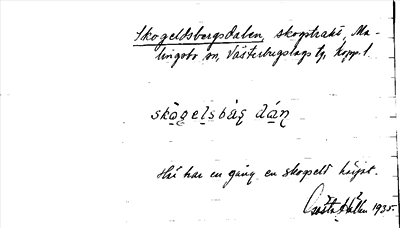 Skogeldsbergsdalen, skogstrakt, Ma-
lingsbo sn, Västerbergslags tg, Kopp. l.
skògelsbàs dán
Här har en gång en skogseld härjat.
Gösta 1935.